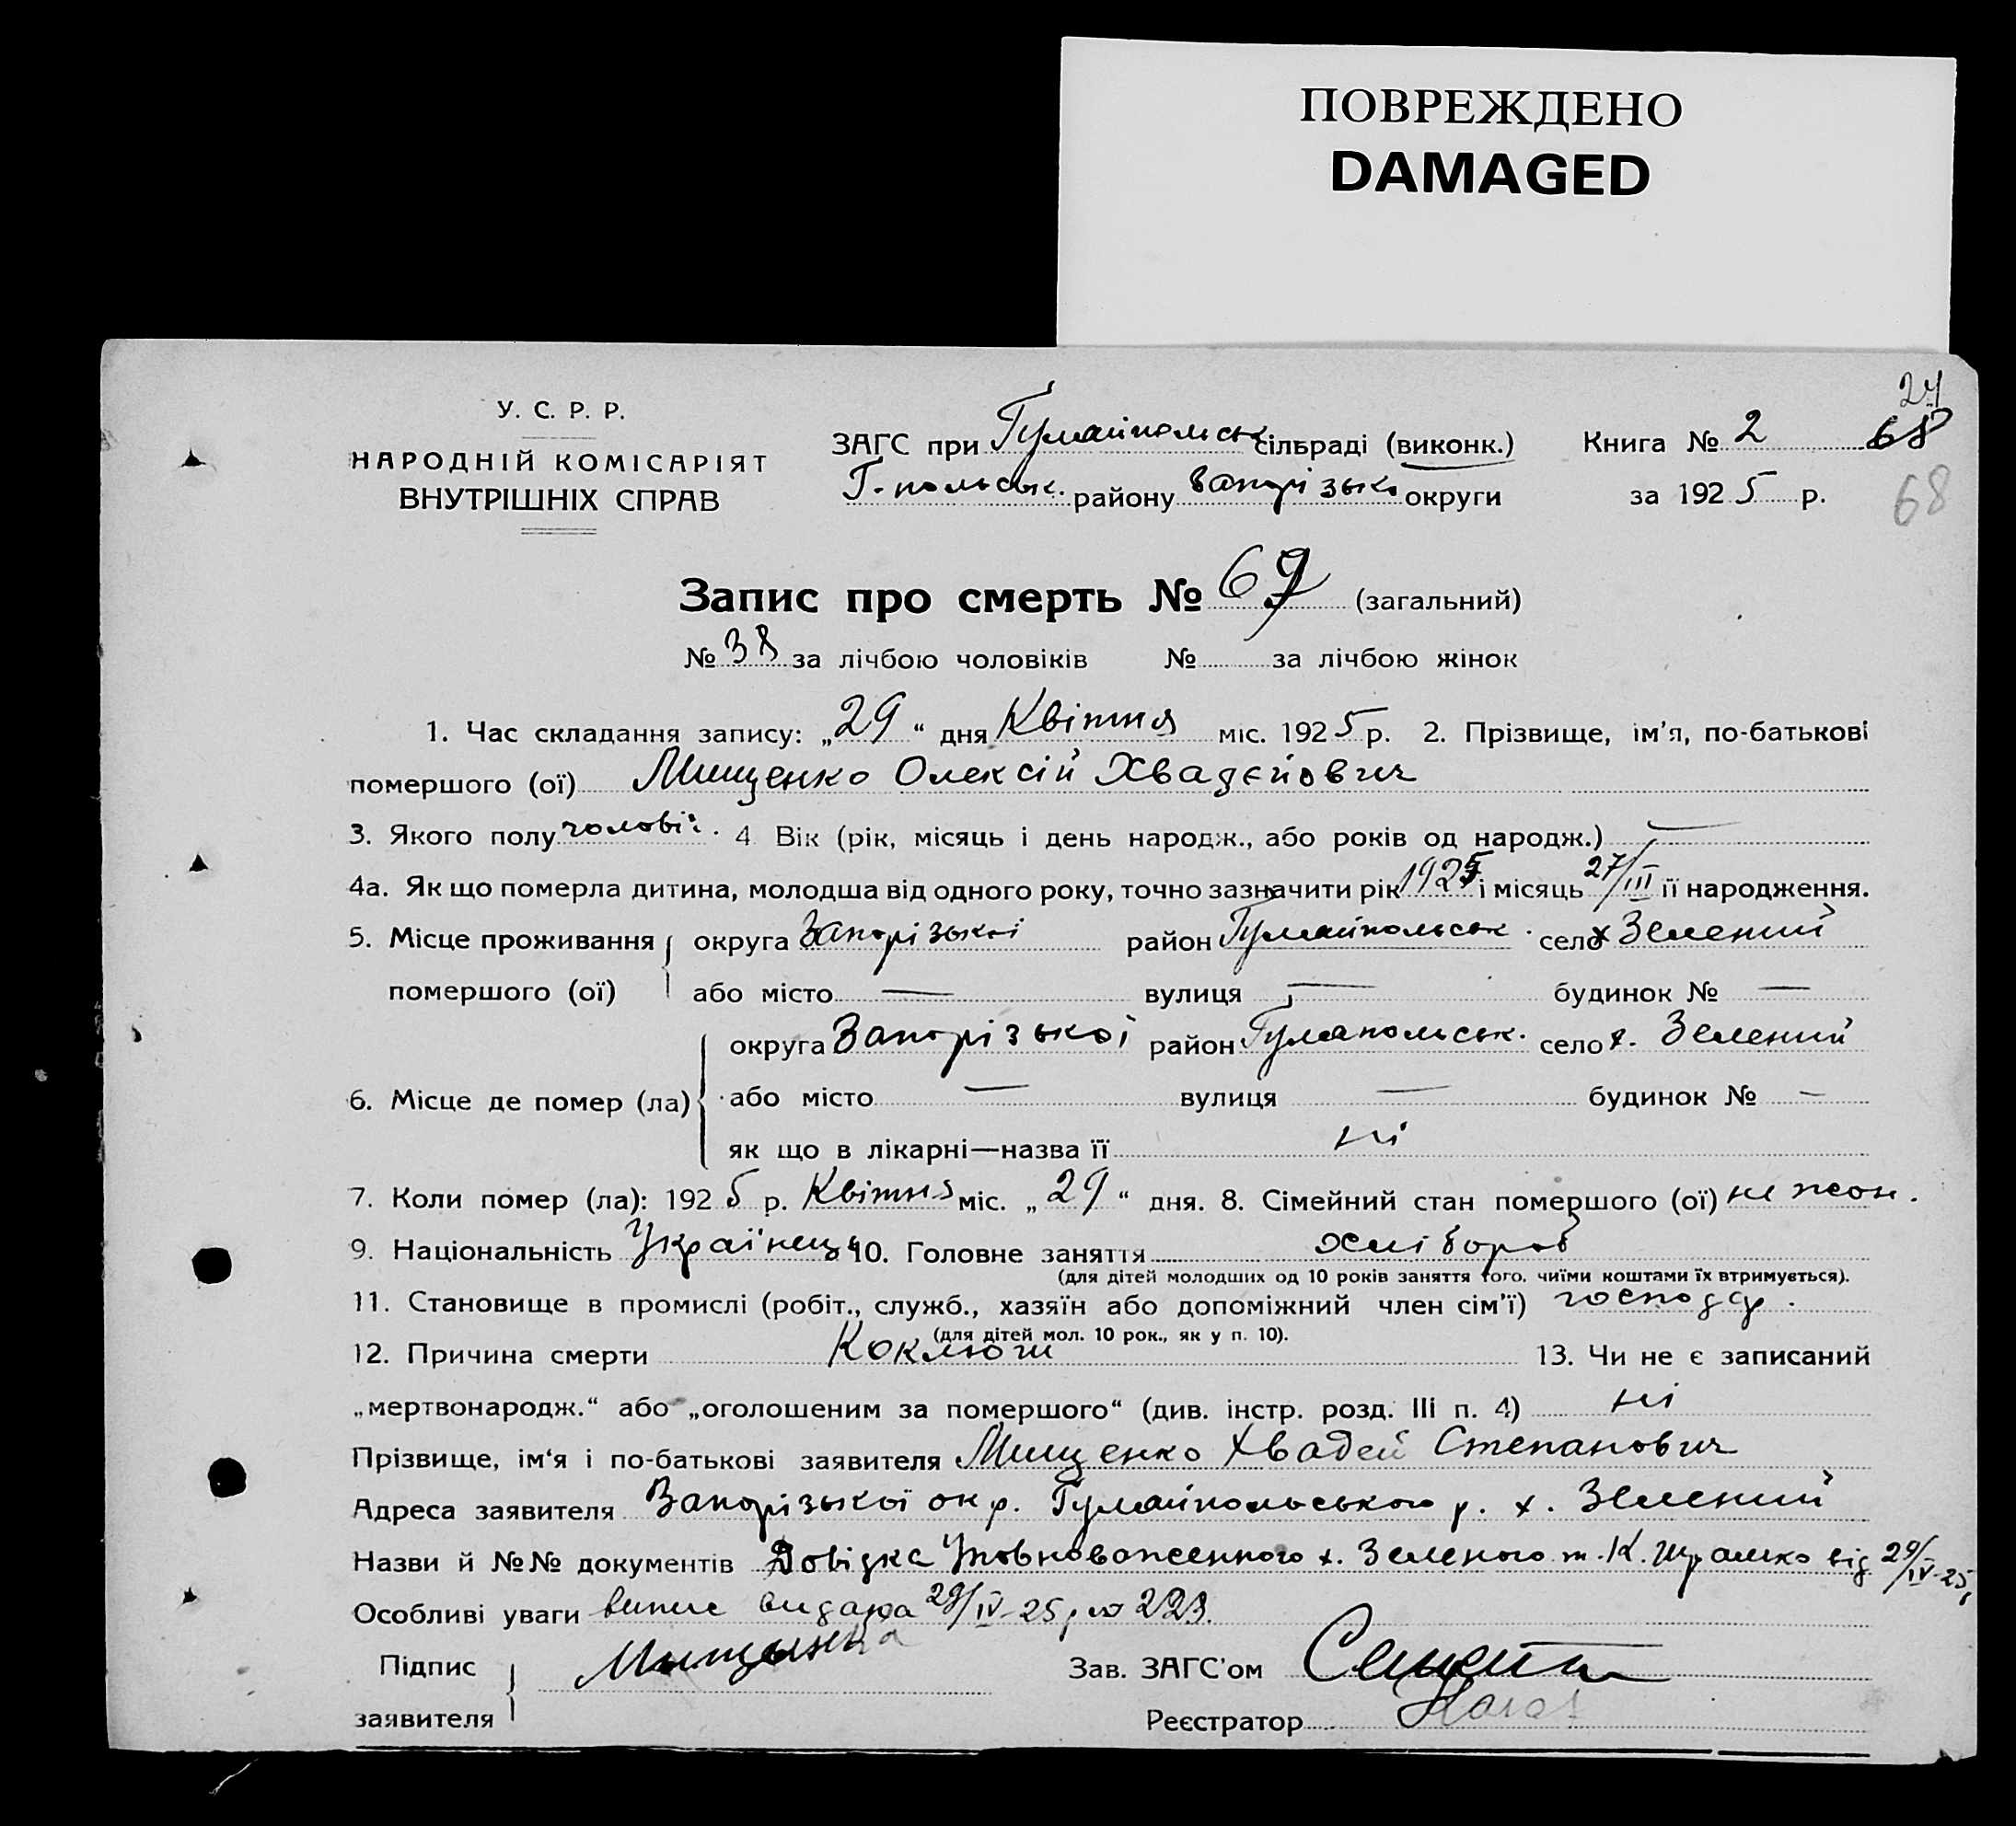 ПОВРЕЖДЕНО
DAMAGED
24
У. С. Р. Р.
НАРОДНІЙ КОМІСАРІЯТ
ВНУТРІШНІХ СПРАВ
ЗАГС при Гуляйпольськ сільраді (виконк.) Книга № 2 68
Г.-польськ. району Запорізько округи за 1925 р. 68
Запис про смерть № 69 (загальний)
№ 38 за лічбою чоловіків № за лічбою жінок
1. Час складання запису: „29“ дня Квітня міс. 1925 р. 2. Прізвище, ім'я, по-батькові
помершого (ої) Мищенко Олексій Хвадєйович
3. Якого полу чолові. 4 Вік (рік, місяць і день народж., або років од народж.) —
4а. Як що померла дитина, молодша від одного року, точно зазначити рік 1925 і місяць 27/III її народження.
5. Місце проживання округа Запорізької район Гуляйпольськ. село х Зелений
помершого (ої) або місто — вулиця — будинок № —
округа Запорізької район Гуляпольськ. село х. Зелений
6. Місце де помер (ла) або місто — вулиця — будинок № —
як що в лікарні—назва її ні
7. Коли помер (ла): 1925 р. Квітня міс. „29“ дня. 8. Сімейний стан помершого (ої) не жон.
9. Національність Українець 10. Головне заняття хлібороб
(для дітей молодших од 10 років заняття того, чиїми коштами їх втримується).
11. Становище в промислі (робіт., служб., хазяїн або допоміжний член сім'ї) господар.
(для дітей мол. 10 рок., як у п. 10).
12. Причина смерти Коклюш 13. Чи не є записаний
„мертвонародж.“ або „оголошеним за помершого“ (див. інстр. розд. III п. 4) ні
Прізвище, ім'я і по-батькові заявителя Мищенко Хвадей Степанович
Адреса заявителя Запорізької окр. Гуляйпольського р. х. Зелений
Назви й №№ документів Довідка Уповноваженного х. Зеленого т. К. від 29/IV-25
Особливі уваги випис видана 29/IV-25 р № 223.
Підпис Зав. ЗАГС'ом
заявителя Реєстратор